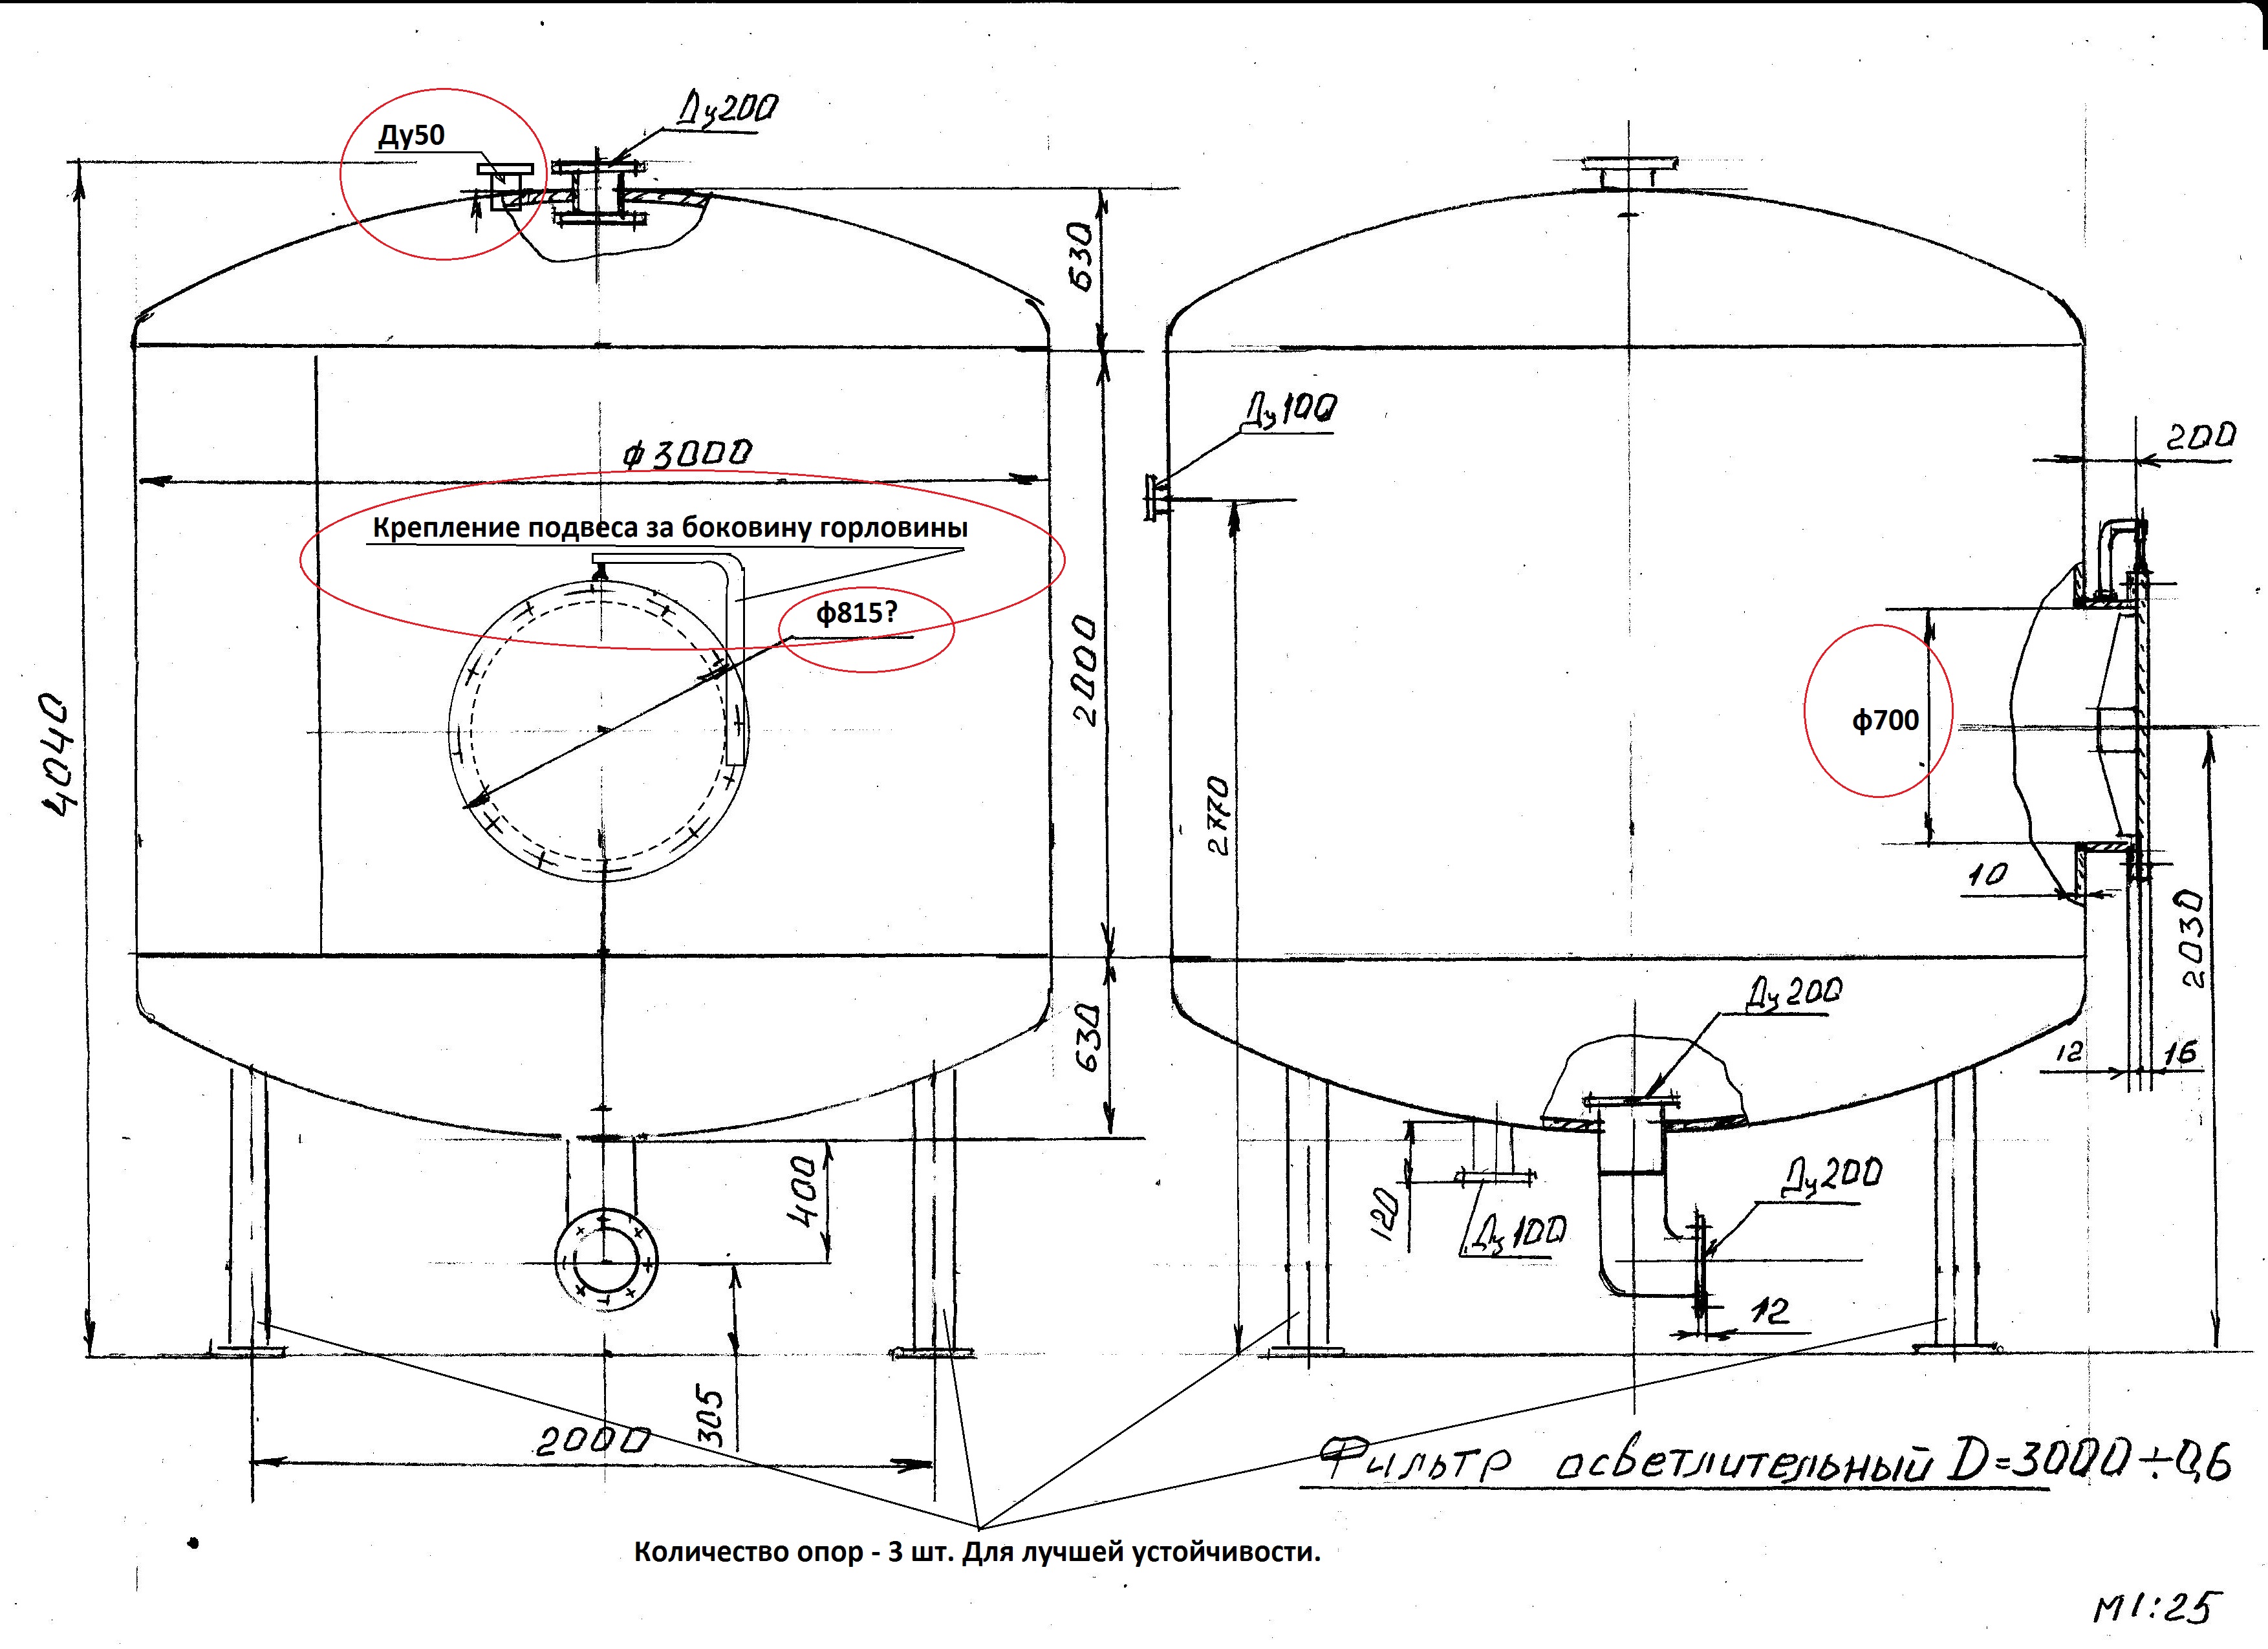 Ду50
Ду200
630
ф3000
Крепление подвеса за боковину горловины
ф815?
4040
2000
630
400
305
2000
Ду100
200
2770
ф700
10
2030
12
16
Ду200
120
Ду100
Ду200
12
Фильтр осветлительный D=3000÷0,6
Количество опор - 3 шт. Для лучшей устойчивости.
М1:25